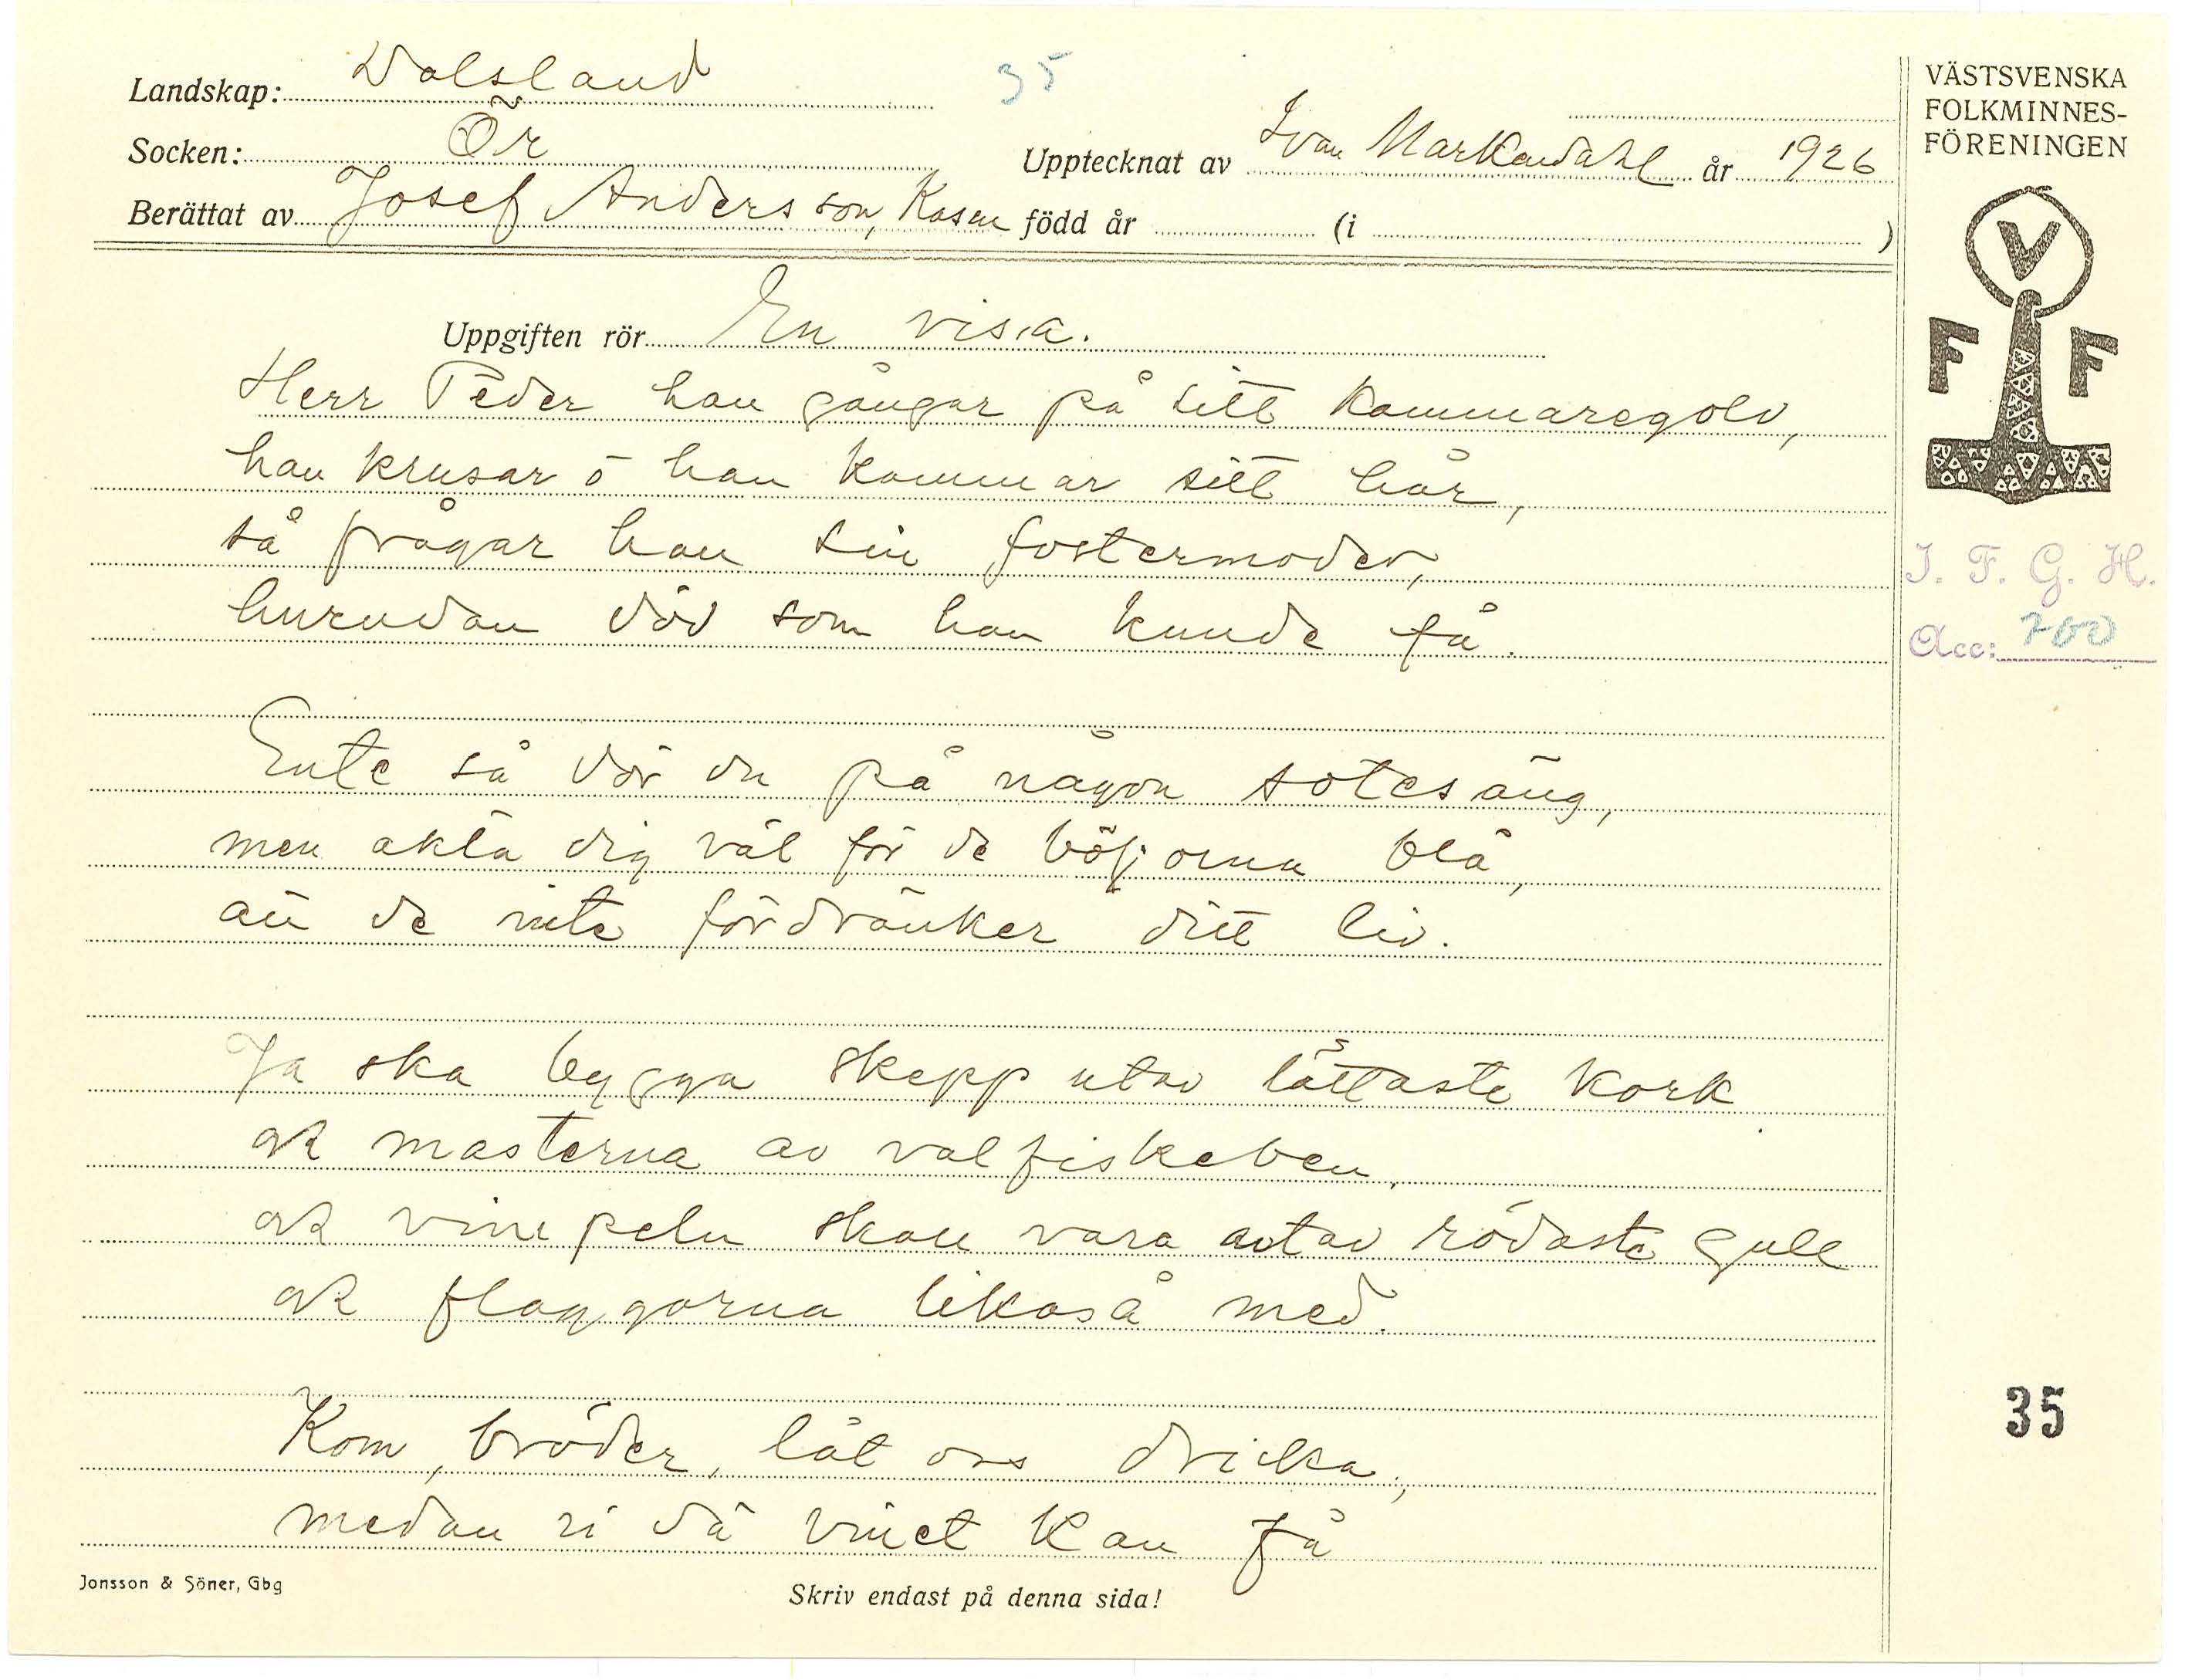 Landskap: Dalsland
35
Socken: Ör
Upptecknat av Ivar Markendahl år 1926
Berättat av Josef Andersson, Kasen född år (i )
VÄSTSVENSKA
FOLKMINNES-
FÖRENINGEN
V
F F
I. F. G. H.
Acc: 700
Uppgiften rör En visa.
Herr Peder han gångar på sitt kammaregolv,
han krusar ō han kammar sitt hår,
så frågar han sin fostermoder,
hurudan död som han kunde få.
Ente så dör du på någon sotesäng,
men akta dig väl för de böljorna blå,
än de inte fördränker ditt liv.
Ja ska bygga skepp utav lättaste kork
ock masterna av valfiskeben,
ock vimpeln skall vara utav rödaste gull
ock flaggorna likaså med.
Kom, bröder, låt oss dricka,
medan vi dä vinet kan få
35
Jonsson & Söner, Gbg
Skriv endast på denna sida!